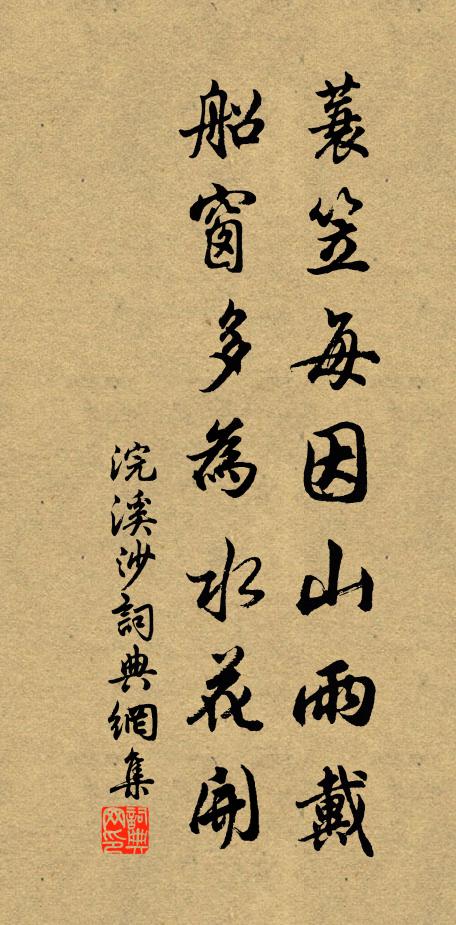 蓑笠每因山雨戴
船窗多為水花開
浣溪沙詞典網集
詞典網印